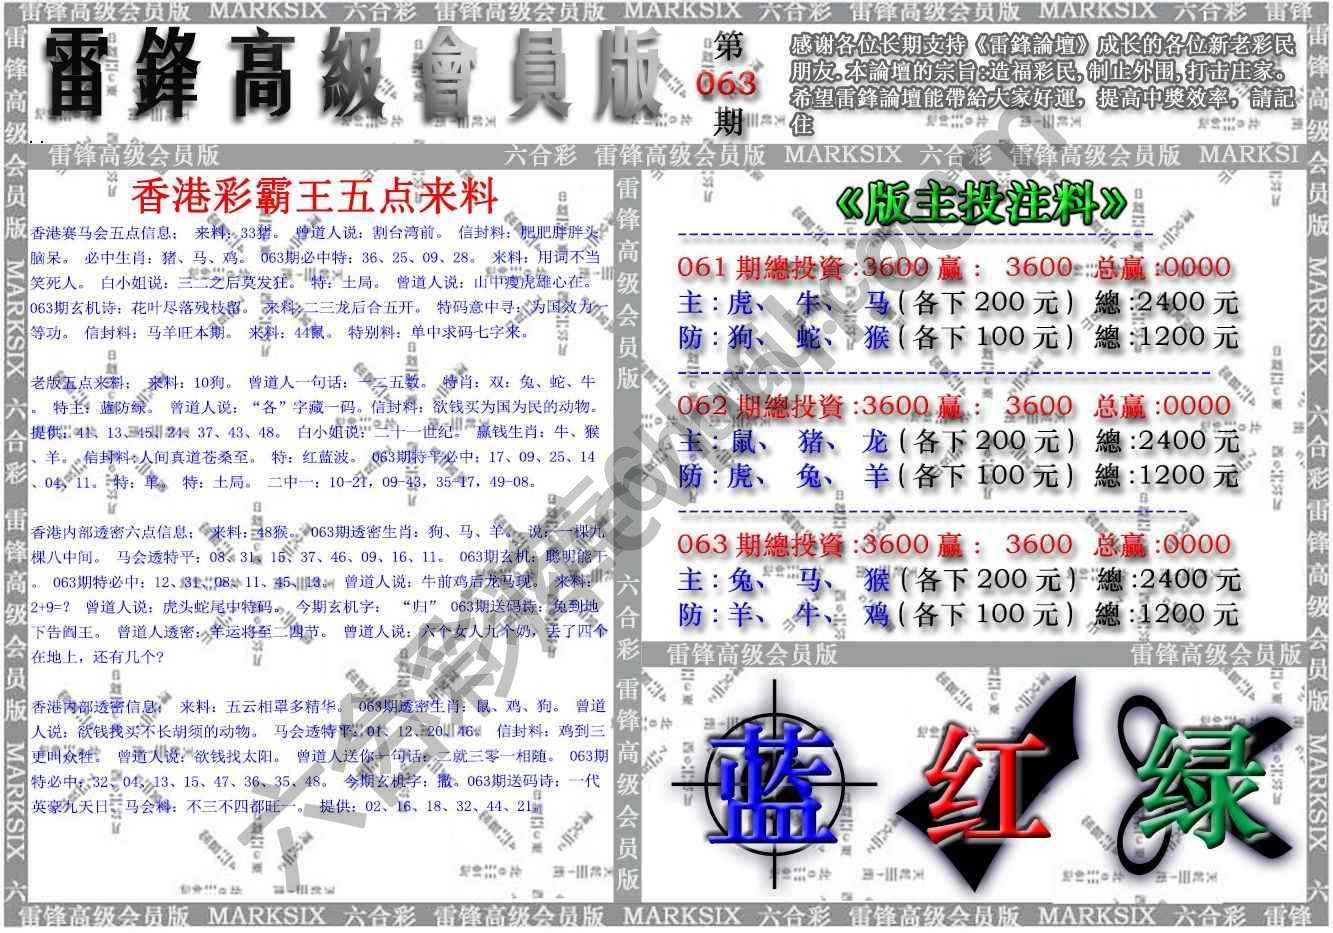 雷锋高级会员版 MARKSIX 六合彩 雷锋高级会员版 MARKSIX 六合彩 雷锋高级会员版 MARKSIX 六合彩 雷锋
雷鋒高級會員版
第
063
期
感谢各位长期支持《雷鋒論壇》成长的各位新老彩民
朋友.本論壇的宗旨:造福彩民,制止外围,打击庄家。
希望雷鋒論壇能帶給大家好運，提高中獎效率，請記
住
雷锋高级会员版 六合彩 雷锋高级会员版 MARKSIX 六合彩 雷锋高级会员版 MARKSI
香港彩霸王五点来料
香港赛马会五点信息； 来料：33猪。 曾道人说：割台湾前。 信封料：肥肥胖胖头
脑呆。 必中生肖：猪、马、鸡。 063期必中特：36、25、09、28。 来料：用词不当
笑死人。 白小姐说：三二之后莫发狂。 特：土局。 曾道人说：山中瘦虎雄心在。
063期玄机诗：花叶尽落残枝留。 来料：二三龙后合五开。 特码意中寻：为国效力一
等功。 信封料：马羊旺本期。 来料：44鼠。 特别料：单中求码七字来。
老版五点来料； 来料：10狗。 曾道人一句话：一二五数。 特肖：双：兔、蛇、牛
。 特主：蓝防绿。 曾道人说：“各”字藏一码。信封料：欲钱买为国为民的动物。
提供：41、13、45、24、37、43、48。 白小姐说：二十一世纪。 赢钱生肖：牛、猴
、羊。 信封料:人间真道苍桑至。 特：红蓝波。 063期特平必中；17、09、25、14
、04、11。 特：单。 特：土局。 二中一：10-21，09-43，35-17，49-08。
香港内部透密六点信息； 来料：48猴。 063期透密生肖：狗、马、羊。 说：一棵九
棵八中间。 马会透特平：08、31、15、37、46、09、16、11。 063期玄机：聪明能干
。 063期特必中：12、31、08、11、45、13。 曾道人说：牛前鸡后龙马现。 来料：
2+9=？ 曾道人说：虎头蛇尾中特码。 今期玄机字： “归” 063期送码诗：兔到地
下告阎王。 曾道人透密：羊运将至二四节。 曾道人说：六个女人九个奶，丢了四个
在地上，还有几个?
香港内部透密信息； 来料：五云相罩多精华。 063期透密生肖：鼠、鸡、狗。 曾道
人说：欲钱找买不长胡须的动物。 马会透特平：01、12、20、46。 信封料：鸡到三
更叫众牲。 曾道人说：欲钱找太阳。 曾道人送你一句话：二就三零一相随。 063期
特必中：32、04、13、15、47、36、35、48。 今期玄机字：撒。063期送码诗：一代
英豪九天日。马会料：不三不四都旺一。 提供：02、16、18、32、44、21。
《版主投注料》
061期總投資:3600 赢： 3600 总赢:0000
主:虎、 牛、 马(各下200元) 總:2400元
防:狗、 蛇、 猴(各下100元) 總:1200元
062期總投資:3600 赢： 3600 总赢:0000
主:鼠、 猪、 龙(各下200元) 總:2400元
防:虎、 兔、 羊(各下100元) 總:1200元
063期總投資:3600 赢： 3600 总赢:0000
主:兔、 马、 猴(各下200元) 總:2400元
防:羊、 牛、 鸡(各下100元) 總:1200元
雷锋高级会员版 雷锋高级会员版
蓝 红 绿
雷锋高级会员版 MARKSIX 六合彩 雷锋高级会员版 MARKSIX 六
雷锋高级会员版 六合彩 雷锋高级会员版
雷锋高级会员版 MARKSIX 六合彩 雷锋高级会员版 MARKSIX 六
雷锋高级会员版 MARKSIX 六合彩 雷锋高级会员版 MARKSIX 六合彩 雷锋高级会员版 MARKSIX 六合彩 雷锋